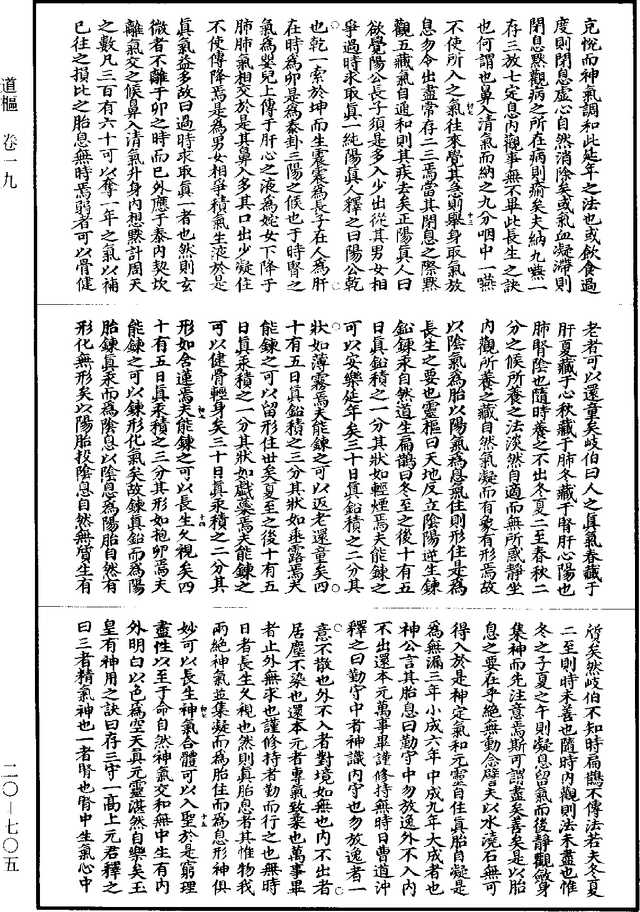 克恱而神氣調和此延年之法也或飲食過
度則閉息虛心自然消除矣或氣血凝滯則
閉息黙觀病之所在病則瘉矣夫納九嚥一
存三放七定息內觀事無不畢此長生之訣
也何謂也鼻入清氣而納之九分咽中一嚥
不使所入之氣往來覺其急則舉身取氣放
息勿令出盡常存二三焉當其閉息之際黙
觀五藏氣自通和則其疾去矣正陽真人曰
欲覺陽公長子須是多入少出從其男女相
爭過時求取真一純陽真人釋之曰陽公乾
也乾一索於坤而生震震為長子在人為肝
在時為卯是為泰卦三陽之候也于時腎之
氣為嬰兒上傳于肝心之液為姹女下降于
肺肺氣相交於是其鼻入多其口出少凝住
不使傳降焉是為男女相爭積氣生液於是
真氣益多故曰過時求取真一者也然則玄
微者不離子卯之時而已外應于泰內契坎
離氣交之候鼻入清氣升身內想黙計周天
之數凡三百有六十可以奪一年之氣以補
已往之損比之胎息無時焉弱者可以骨健
老者可以還童矣岐伯曰人之真氣春藏于
肝夏藏于心秋藏于肺冬藏于腎肝心陽也
肺腎陰也隨時養之不出冬夏二至春秋二
分之候所養之法淡然自適而無所感靜坐
內觀所養之藏自然氣凝而有象有形焉故
以陰氣為胎以陽氣為息氣住則形住是為
長生之要也靈樞曰天地反立陰陽逆生鍊
鉛鍊汞自然道生扁鵲曰冬至之後十有五
日真鉛積之一分其狀如輕煙焉夫能鍊之
可以安樂延年矣三十日真鉛積之二分其
狀如薄霧焉夫能鍊之可以返老還童矣四
十有五日真鉛積之三分其狀如垂露焉夫
能鍊之可以留形住世矣夏至之後十有五
日真汞積之一分其狀如戲蟇焉夫能鍊之
可以健骨輕身矣三十日真汞積之二分其
形如含蓮焉夫能鍊之可以長生久視矣四
十有五日真汞積之三分其形如抱卵焉夫
能鍊之可以鍊形化氣矣故鍊真鉛而為陽
胎鍊真汞而為陰息以陰息為陽胎自然有
形化無形矣以陽胎投陰息自然無質生有
質矣然岐伯不知時扁鵲不傳法若夫冬夏
二至則時未善也隨時內觀則法未盡也惟
冬之子夏之午則凝息留氣而後靜觀斂身
集神而先注意焉斯可謂盡矣善矣是以胎
息之要在乎絕無動念譬夫以水澆石無可
得入於是神定氣和元靈自住真胎自凝是
為無漏三年小成六年中成九年大成者也
神公言其胎息曰勤守中勿放逸外不入內
不出還本元萬事畢謹修持無時日曹道沖
釋之曰勤守中者神識內守也勿放逸者一
意不散也外不入者對境如無也內不出者
居塵不染也還本元者專氣致柔也萬事畢
者止外無求也謹修持者勤而行之也無時
日者長生久視也然則真胎息者其惟物我
兩絕神氣並集凝而為胎住而為息形神俱
妙可以長生神氣合體可以入聖於是窮理
盡性以至于命自然神氣交和無中生有內
外明白以色為空天真元靈湛然自樂矣玉
皇有神用之訣曰存三守一高上元君釋之
曰三者精氣神也一者腎也腎中生氣心中
道樞 卷一九
二〇—七〇五